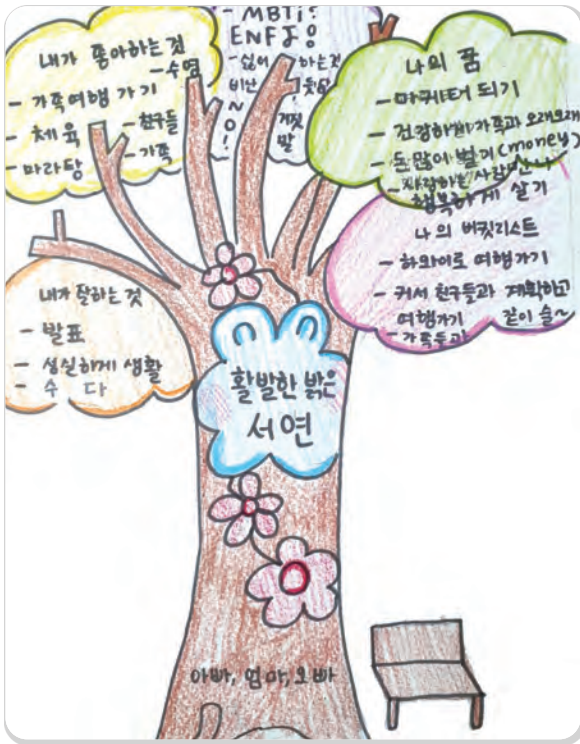 내가 좋아하는 것
- 수영
- 가족여행 가기
- 체육
- 친구들
- 마라탕
- 가족
- MBTi?
ENFJ!
- 싫어하는것
비난
~
O!
거짓
말
나의 꿈
- 마케터 되기
- 건강하게 가족과 오래오래
- 돈 많이 벌기 (money)
- 사랑하는 사람만나
행복하게 살기
나의 버킷리스트
- 하와이로 여행가기
- 커서 친구들과 계획하고
여행가기
- 가족들과 같이 술~
내가 잘하는 것
- 발표
- 성실하게 생활
- 수다
활발한 밝은
서연
아빠, 엄마, 오빠